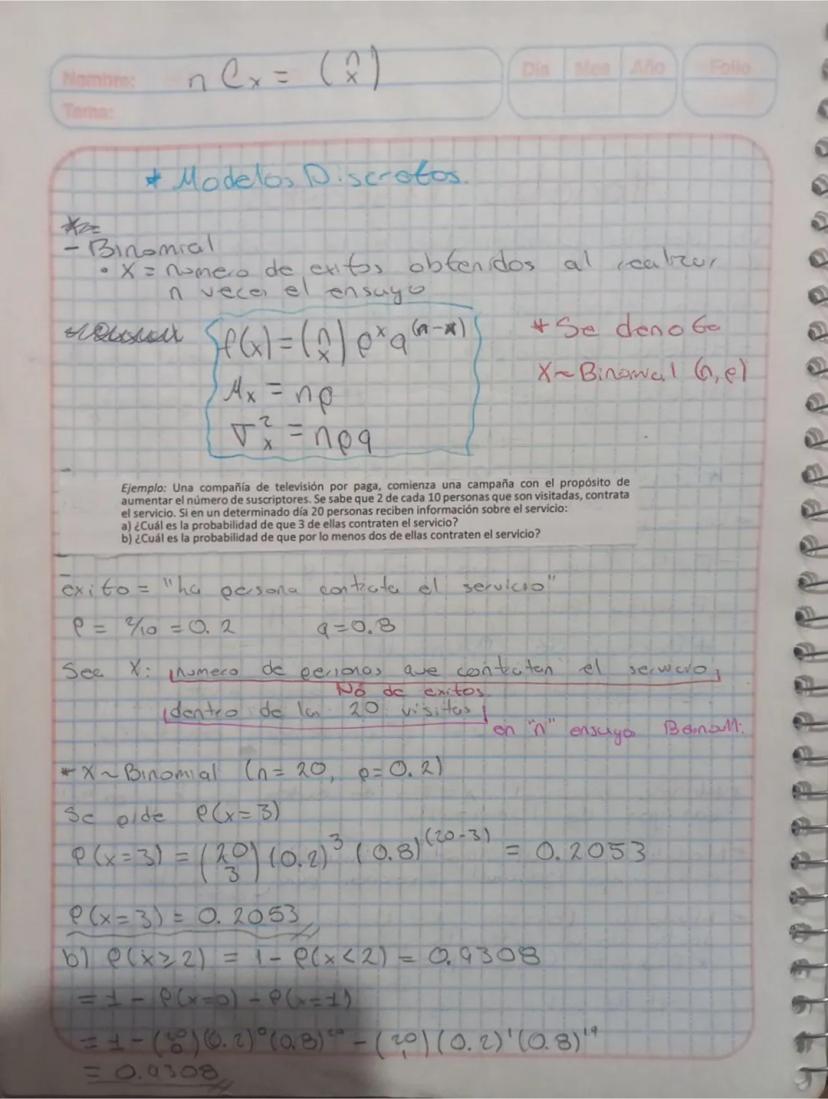 nCx = (n x)
Nombre:
Tema:
Día Mes Año Folio
* Modelos Discretos.
- Binomial
• X = numero de exitos obtenidos al realizar
n veces el ensayo
P(x) = (n x) p^x q^(n-x)
μx = np
σ²x = npq
* Se denota
X~Binomial (n, p)
Ejemplo: Una compañía de televisión por paga, comienza una campaña con el propósito de
aumentar el número de suscriptores. Se sabe que 2 de cada 10 personas que son visitadas, contrata
el servicio. Si en un determinado día 20 personas reciben información sobre el servicio:
a) ¿Cuál es la probabilidad de que 3 de ellas contraten el servicio?
b) ¿Cuál es la probabilidad de que por lo menos dos de ellas contraten el servicio?
exito = "La persona contrata el servicio"
P = 2/10 = 0.2 q = 0.8
Sea X: numero de personas que contratan el servicio,
No de exitos
dentro de las 20 visitas
en "n" ensayo Bernoulli
* X~Binomial (n = 20, p = 0.2)
Se pide P(x=3)
P(x=3) = (20 3) (0.2)^3 (0.8)^(20-3) = 0.2053
P(x=3) = 0.2053
b) P(x≥2) = 1 - P(x<2) = 0.9308
= 1 - P(x=0) - P(x=1)
= 1 - (20 0)(0.2)^0 (0.8)^20 - (20 1)(0.2)^1 (0.8)^19
= 0.9308